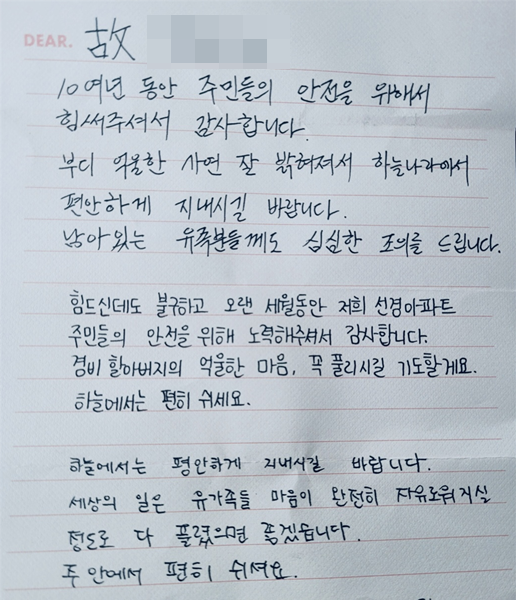 DEAR. 故
10여년 동안 주민들의 안전을 위해서
힘써주셔서 감사합니다.
부디 억울한 사연 잘 밝혀져서 하늘나라에서
편안하게 지내시길 바랍니다.
남아있는 유족분들께도 심심한 조의를 드립니다.
힘드신데도 불구하고 오랜 세월동안 저희 선경아파트
주민들의 안전을 위해 노력해주셔서 감사합니다.
경비 할아버지의 억울한 마음, 꼭 풀리시길 기도할게요.
하늘에서는 편히 쉬세요.
하늘에서는 평안하게 지내시길 바랍니다.
세상의 일은 유가족들 마음이 완전히 자유로워지실
정도로 다 풀렸으면 좋겠습니다.
주 안에서 편히 쉬셔요.